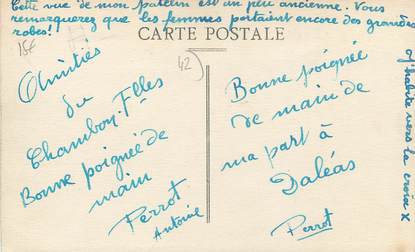 Cette vue de mon patelin est un peu ancienne. Vous
remarquerez que les femmes portaient encore des grandes
robes!
CARTE POSTALE
15f
42
Amitiés
du
Chambon-Flles
Bonne poignée de
main
Perrot
Antoine
Bonne poignée
de main de
ma part à
Daléas
Perrot
J'habite vers la croix X